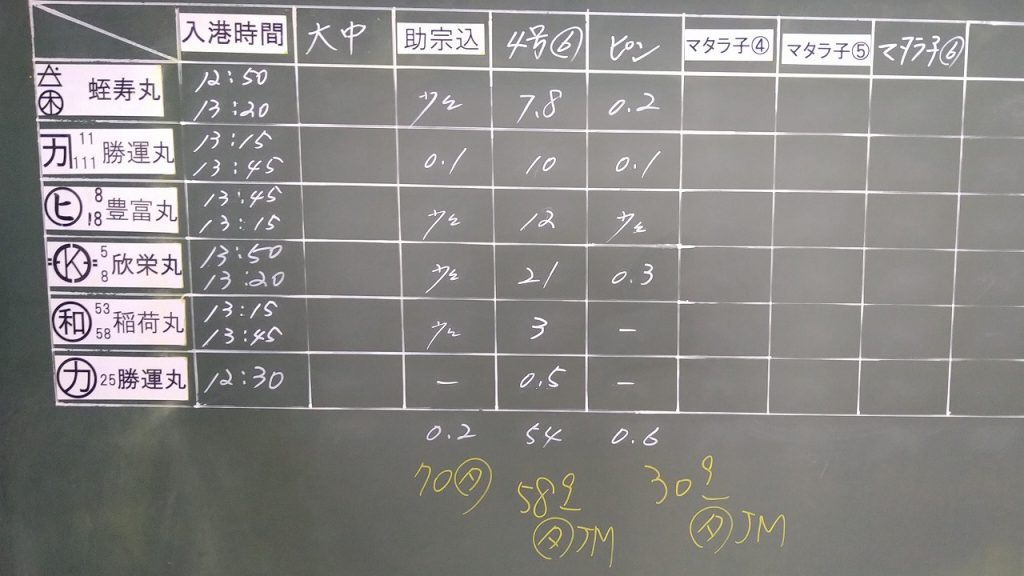 入港時間 大中 助宗込 4号⑥ ピン マタラ子④ マタラ子⑤ マタラ子⑥
12:50
蛭寿丸 少々 7.8 0.2
13:20
13:15
カ 11 111 勝運丸 0.1 10 0.1
13:45
13:45
ヒ 8 18 豊富丸 少々 12 少々
13:15
13:50
K 5 8 欣栄丸 少々 21 0.3
13:20
13:15
和 53 58 稲荷丸 少々 3 –
13:45
カ 25 勝運丸 12:30 – 0.5 –
0.2 54 0.6
70 58 30
JM JM